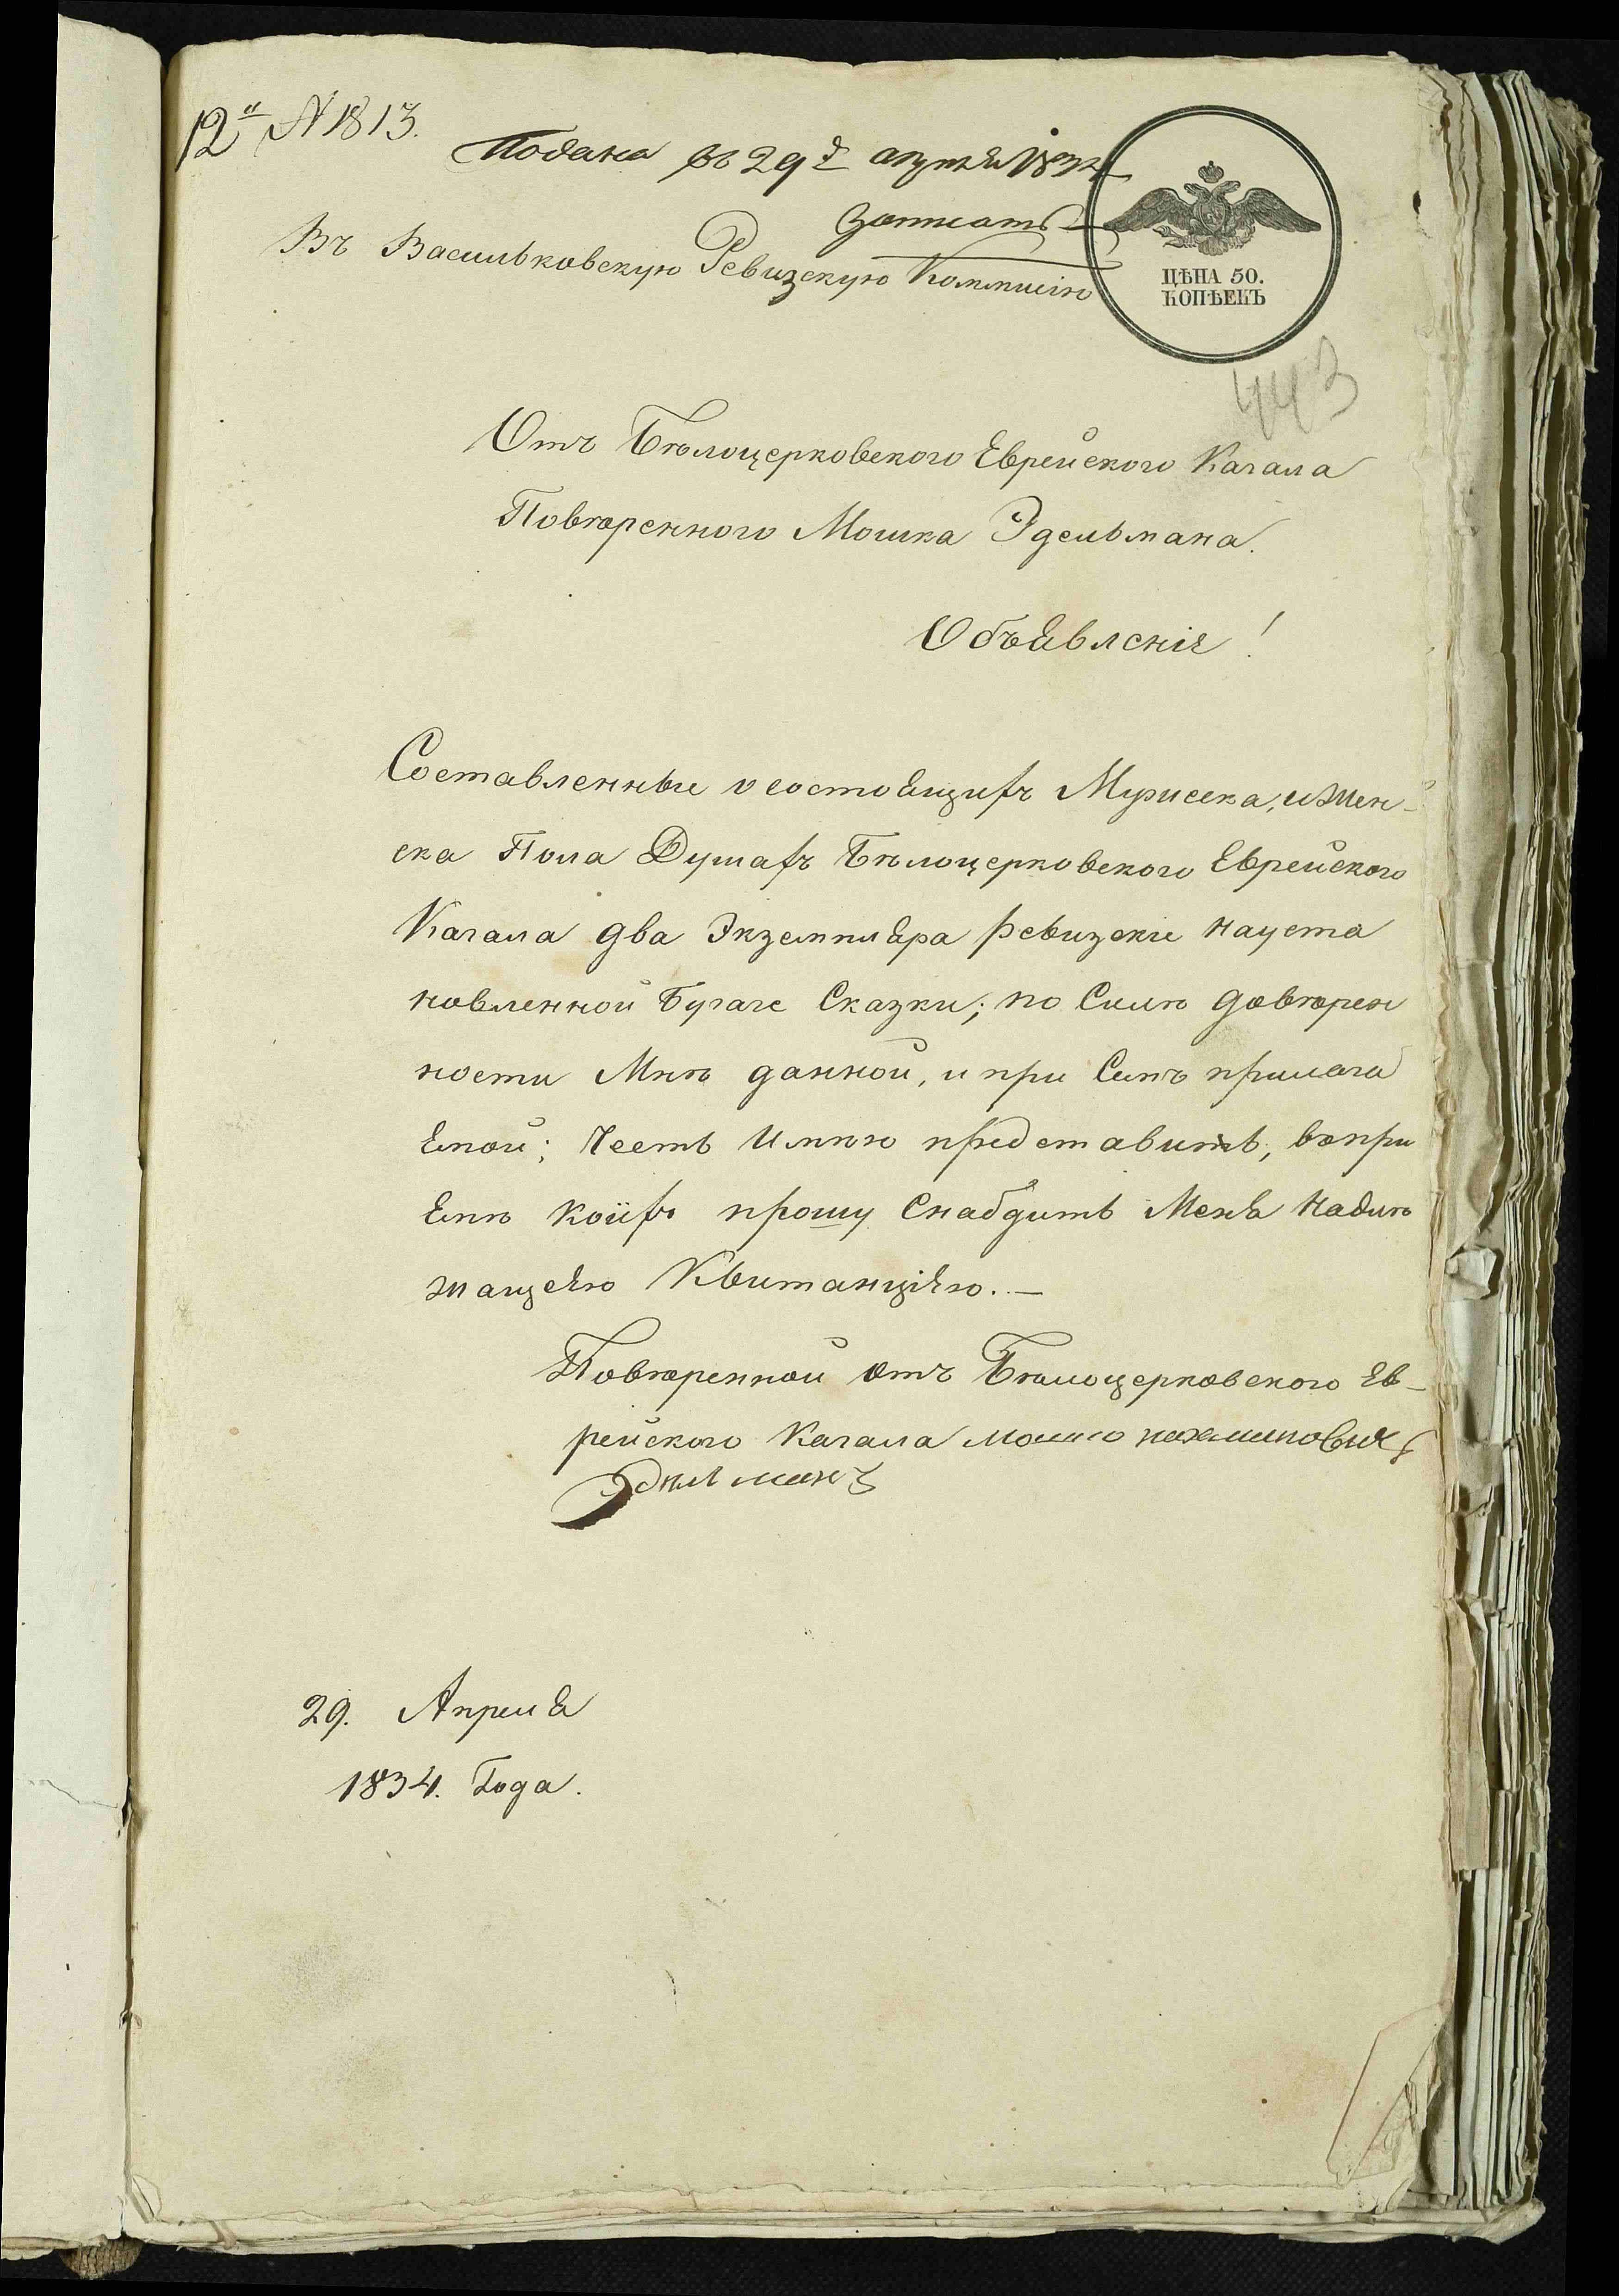 12" N 1813.
Подана въ 29 д апреля 1834
Записать
Въ Васильковскую Ревизскую Коммисію
ЦѢНА 50.
КОПѢЕКЪ
443
Отъ Бѣлоцерковского Еврейского Кагала
Повѣренного Мошка Эдельмана.
Объявленіе!
Составленные о состоящихъ Мужска, и Жен-
ска Пола Душахъ Бѣлоцерковского Еврейского
Кагала два Экземпляра ревизскіе науста
новленной Бугаге Сказки; по Силѣ довѣрен
ности Мнѣ данной, и при Семъ прилага
емой; Честь Имѣю представить, въ при
емѣ коихъ прошу Снабдить Меня Надлѣ
жащею Квитанціею. —
Повѣренной отъ Бѣлоцерковского Ев-
рейского Кагала Мошко
Эделманъ
29. Апреля
1834. Года.